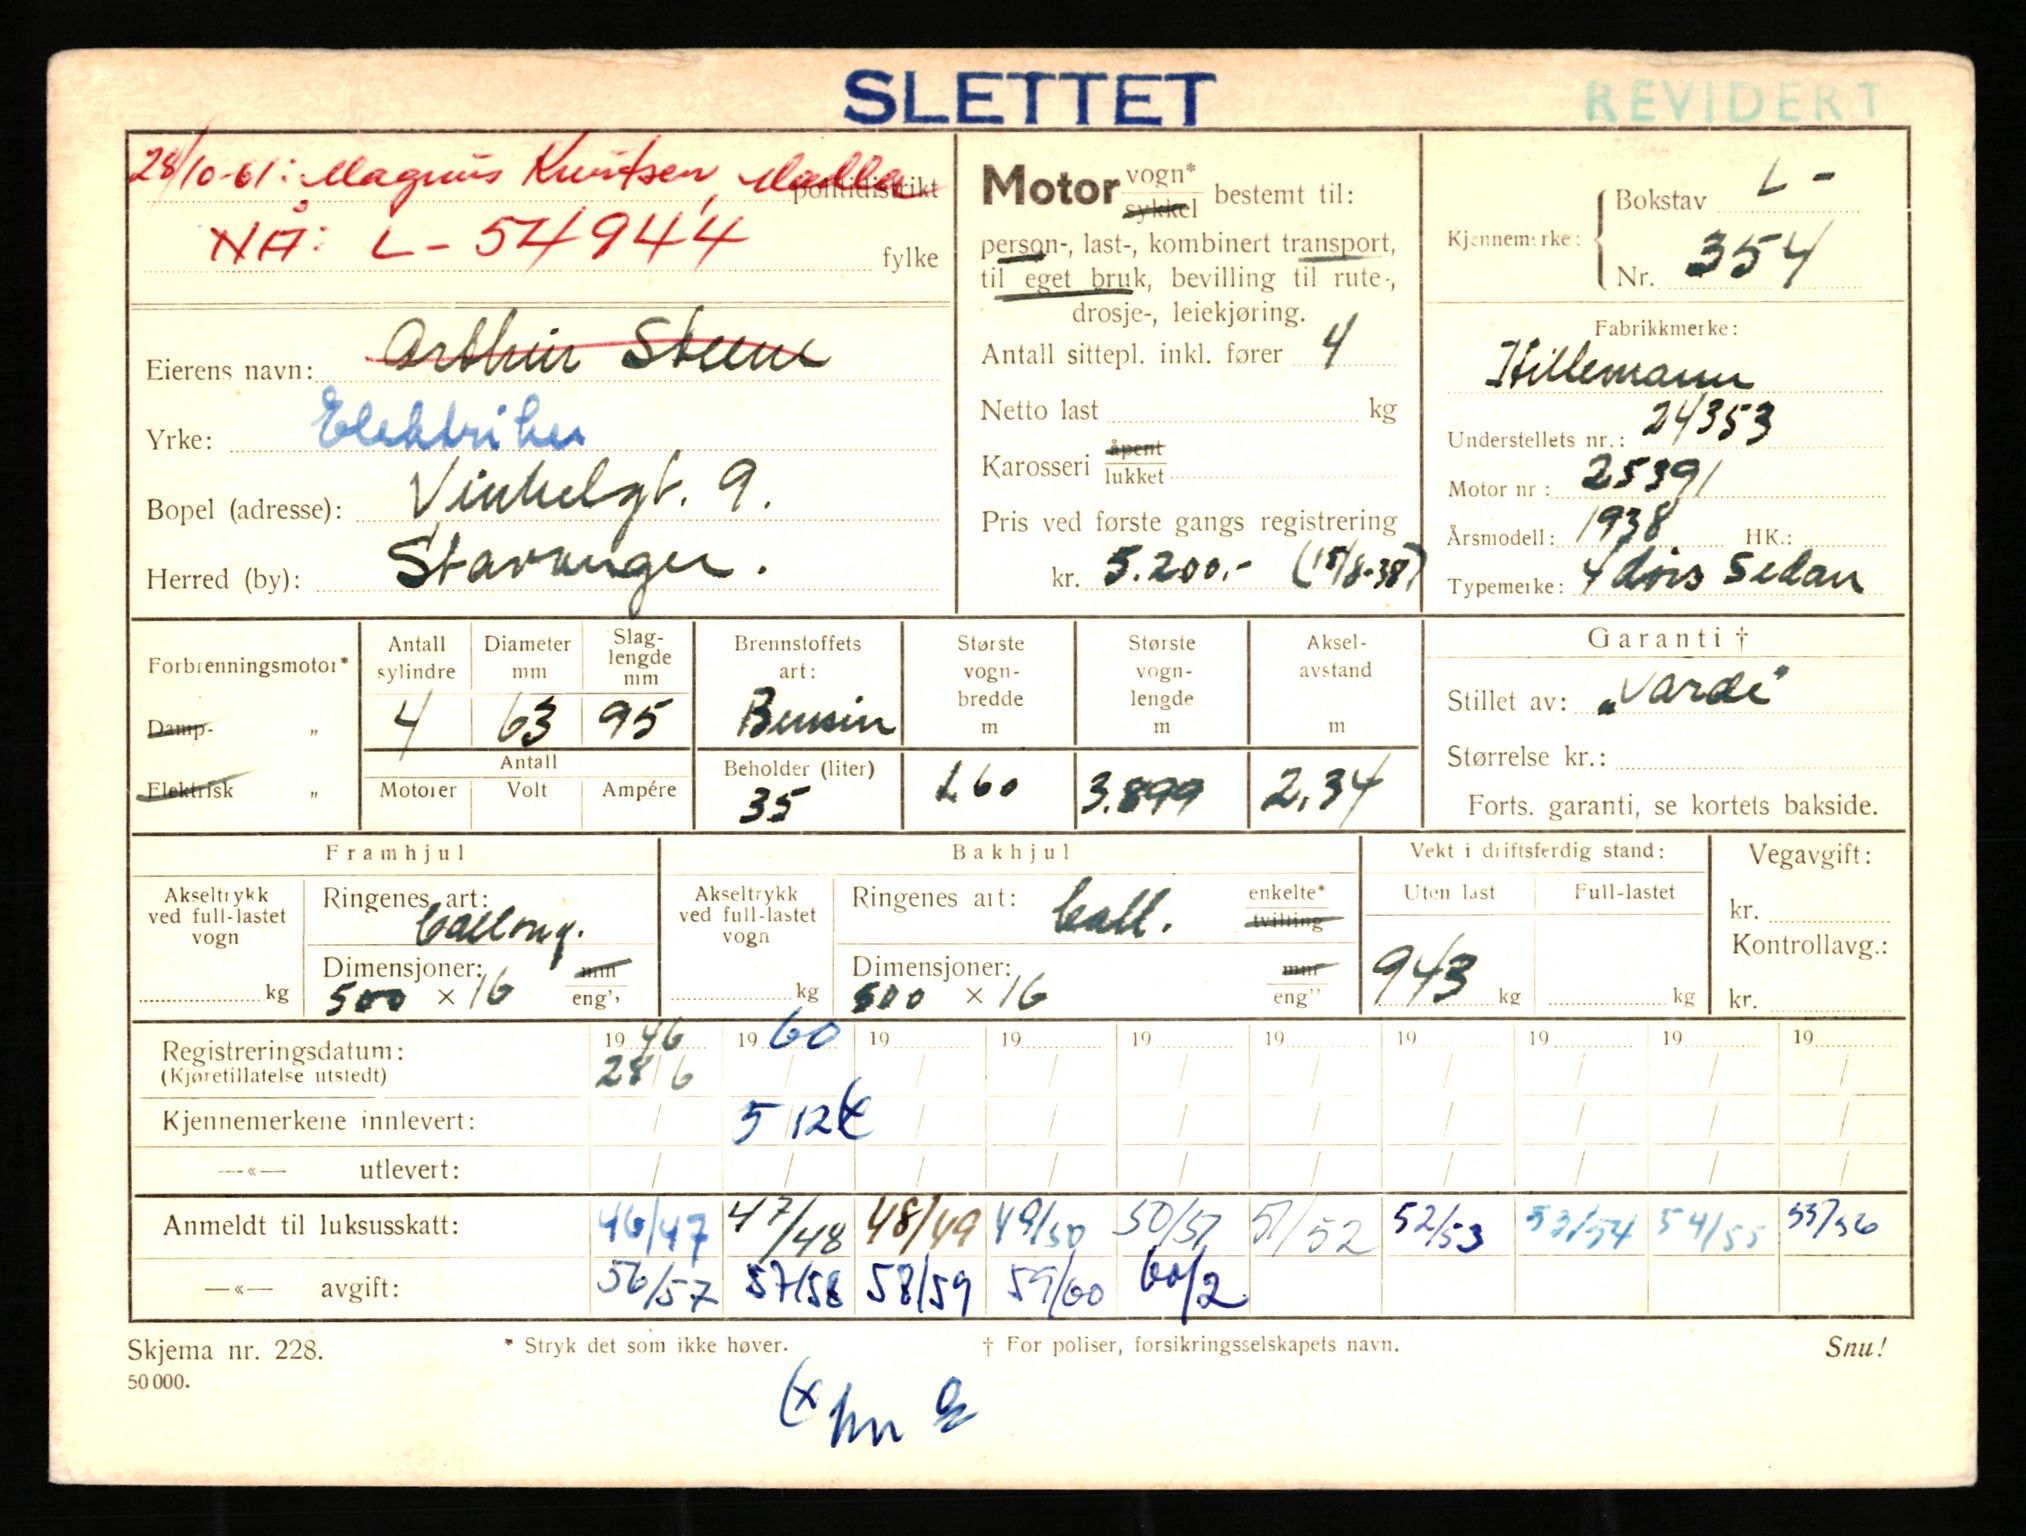 SLETTET
REVIDERT
28/10-61: Magnus Knutsen, Madla
politidistrikt
NÅ: L - 54944
fylke
Eierens navn: Arthur Steene
Yrke: Elektriker
Bopel (adresse): Vinkelgt. 9.
Herred (by): Stavanger.
Motor vogn* sykkel bestemt til:
person-, last-, kombinert transport,
til eget bruk, bevilling til rute-,
drosje-, leiekjøring.
Antall sittepl. inkl. fører 4
Netto last kg
Karosseri åpent lukket
Pris ved første gangs registrering
kr. 5.200.- (15/8-38)
Kjennemerke: Bokstav L -
Nr. 354
Fabrikkmerke:
Hillemann
Understellets nr.: 24353
Motor nr: 25391
Årsmodell: 1938 HK.:
Typemerke: 4 dørs Sedan
Forbrenningsmotor*
Damp- „
Elektrisk „
Antall sylindre 4
Diameter mm 63
Slag-lengde mm 95
Antall
Motorer Volt Ampére
Brennstoffets art: Bensin
Beholder (liter) 35
Største vogn-bredde m 1.60
Største vogn-lengde m 3.899
Aksel-avstand m 2,34
Garanti †
Stillet av: „Varde"
Størrelse kr.:
Forts. garanti, se kortets bakside.
Framhjul
Akseltrykk ved full-lastet vogn kg
Ringenes art: ballong.
Dimensjoner: mm
500 × 16 eng"
Bakhjul
Akseltrykk ved full-lastet vogn kg
Ringenes art: ball. enkelte* tvilling
Dimensjoner: mm
500 × 16 eng"
Vekt i driftsferdig stand:
Uten last Full-lastet
943 kg kg
Vegavgift:
kr.
Kontrollavg.:
kr.
Registreringsdatum: 1946 1960 19 19 19 19 19 19 19 19
(Kjøretillatelse utstedt) 28/6
Kjennemerkene innlevert: 5/12 (x
—«— utlevert:
Anmeldt til luksusskatt: 46/47 47/48 48/49 49/50 50/51 51/52 52/53 53/54 54/55 55/56
—«— avgift: 56/57 57/58 58/59 59/60 60/2
Skjema nr. 228.
* Stryk det som ikke høver.
† For poliser, forsikringsselskapets navn.
Snu!
50 000.
(x